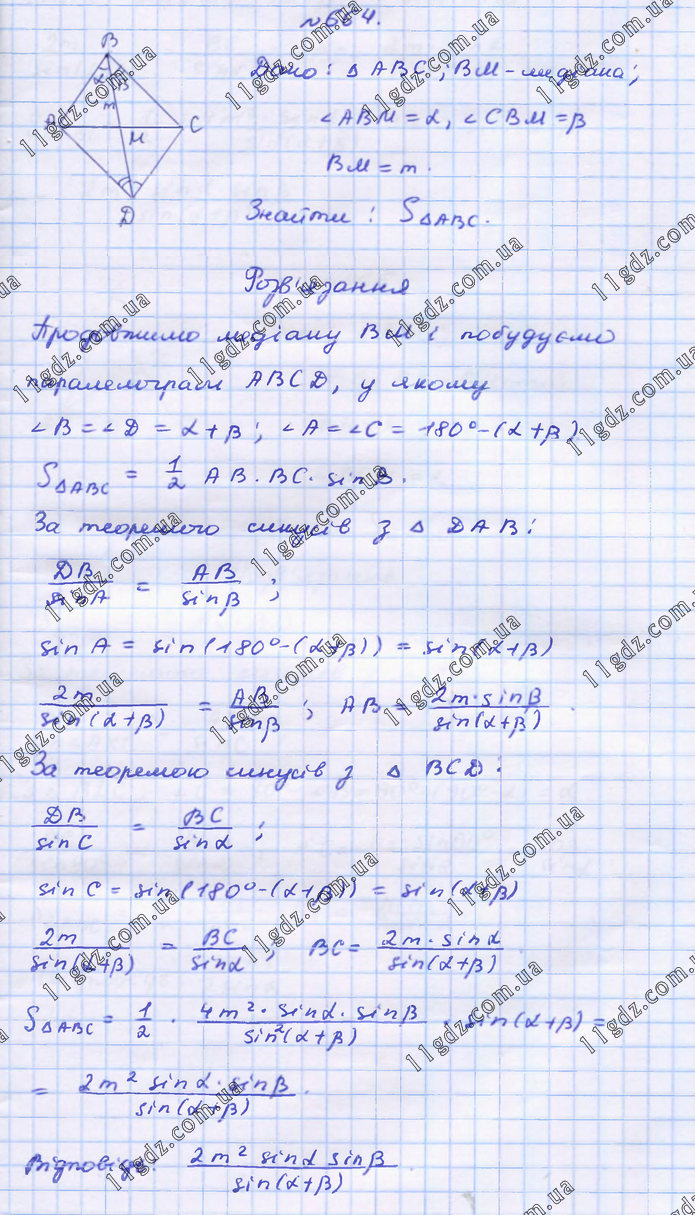 № 664.
Дано: △ABC, BM - медіана;
∠ABM = α, ∠CBM = β
BM = m.
Знайти: S△ABC.
B
α β
m
A
M
C
D
Розв'язання
Продовжимо медіану BM і побудуємо
паралелограм ABCD, у якому
∠B = ∠D = α + β; ∠A = ∠C = 180° - (α + β)
S△ABC = 1/2 AB · BC · sin B.
За теоремою синусів з △DAB:
DB/sin A = AB/sin β;
sin A = sin(180° - (α + β)) = sin(α + β)
2m/sin(α + β) = AB/sin β; AB = 2m · sin β/sin(α + β).
За теоремою синусів з △BCD:
DB/sin C = BC/sin α;
sin C = sin(180° - (α + β)) = sin(α + β)
2m/sin(α + β) = BC/sin α; BC = 2m · sin α/sin(α + β).
S△ABC = 1/2 · 4m² · sin α · sin β/sin²(α + β) · sin(α + β) =
= 2m² sin α · sin β/sin(α + β).
Відповідь: 2m² sin α sin β/sin(α + β).
11gdz.com.ua